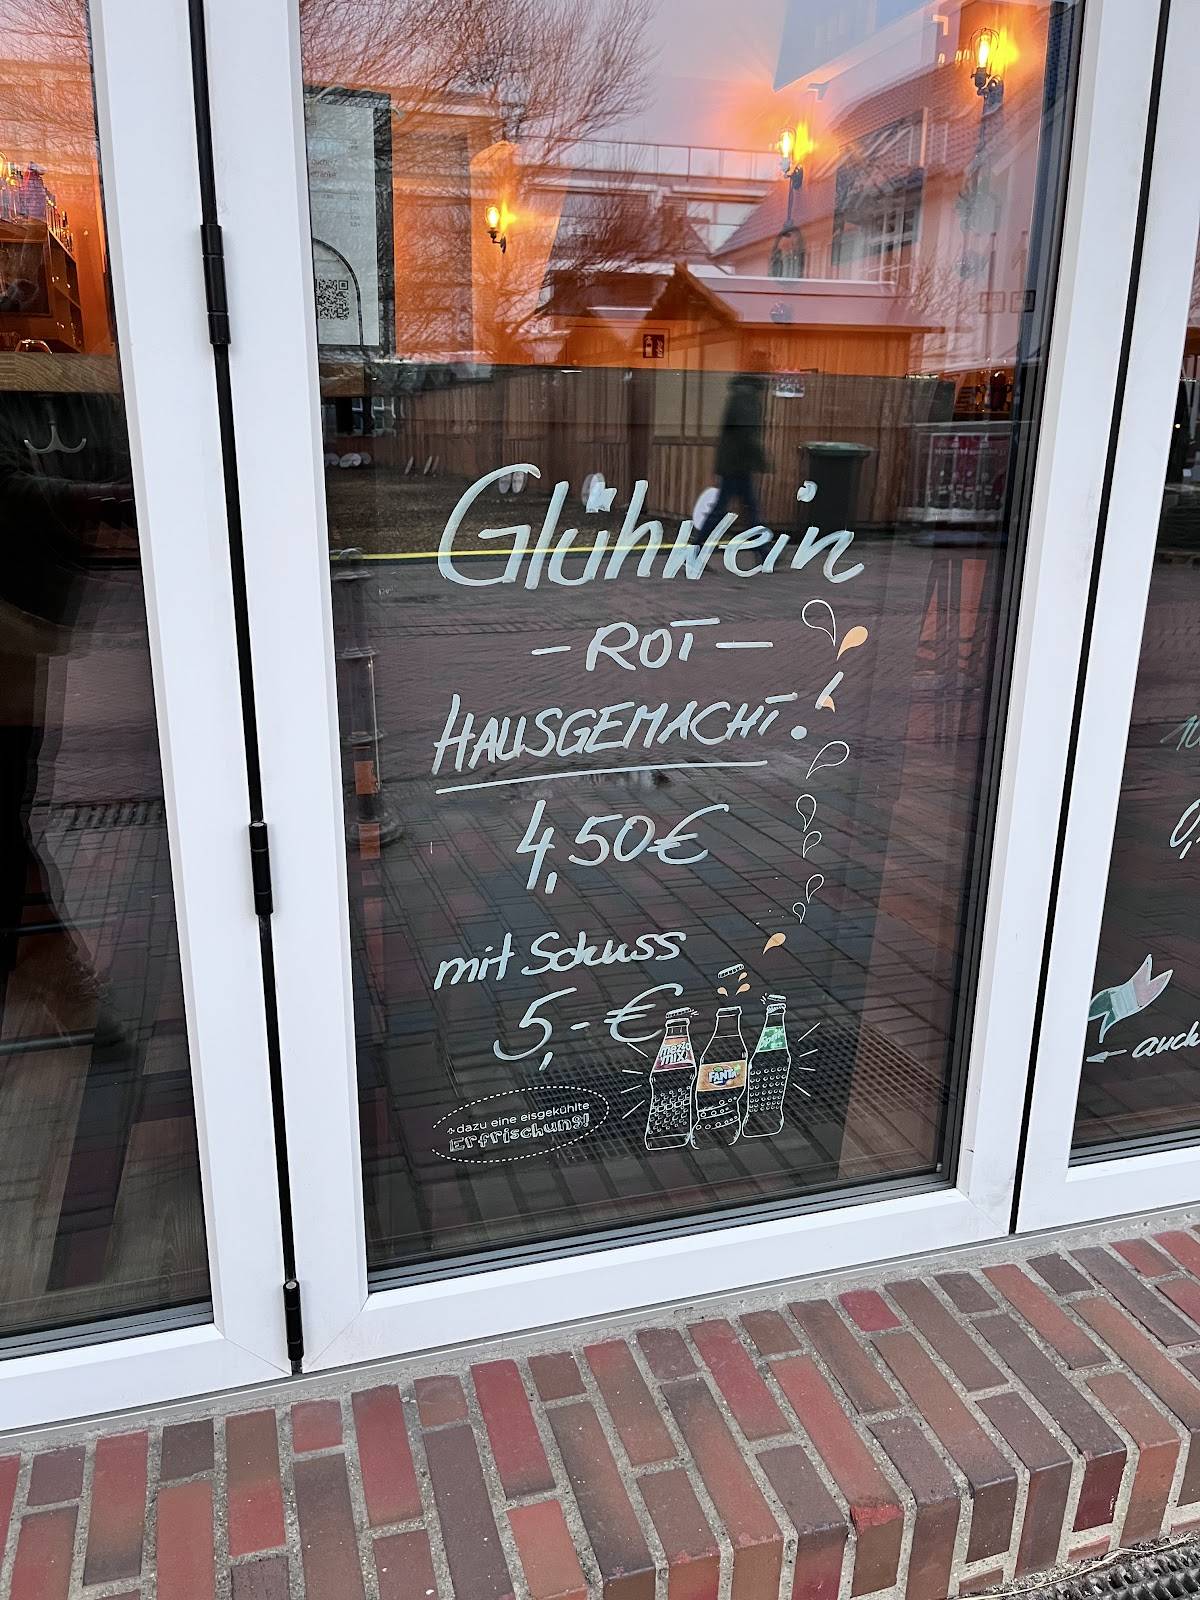 Glühwein
- ROT -
HAUSGEMACHT!
4,50€
mit Schuss
5,-€
mezzo
mix
FANTA
dazu eine eisgekühlte
Erfrischung!
← auch